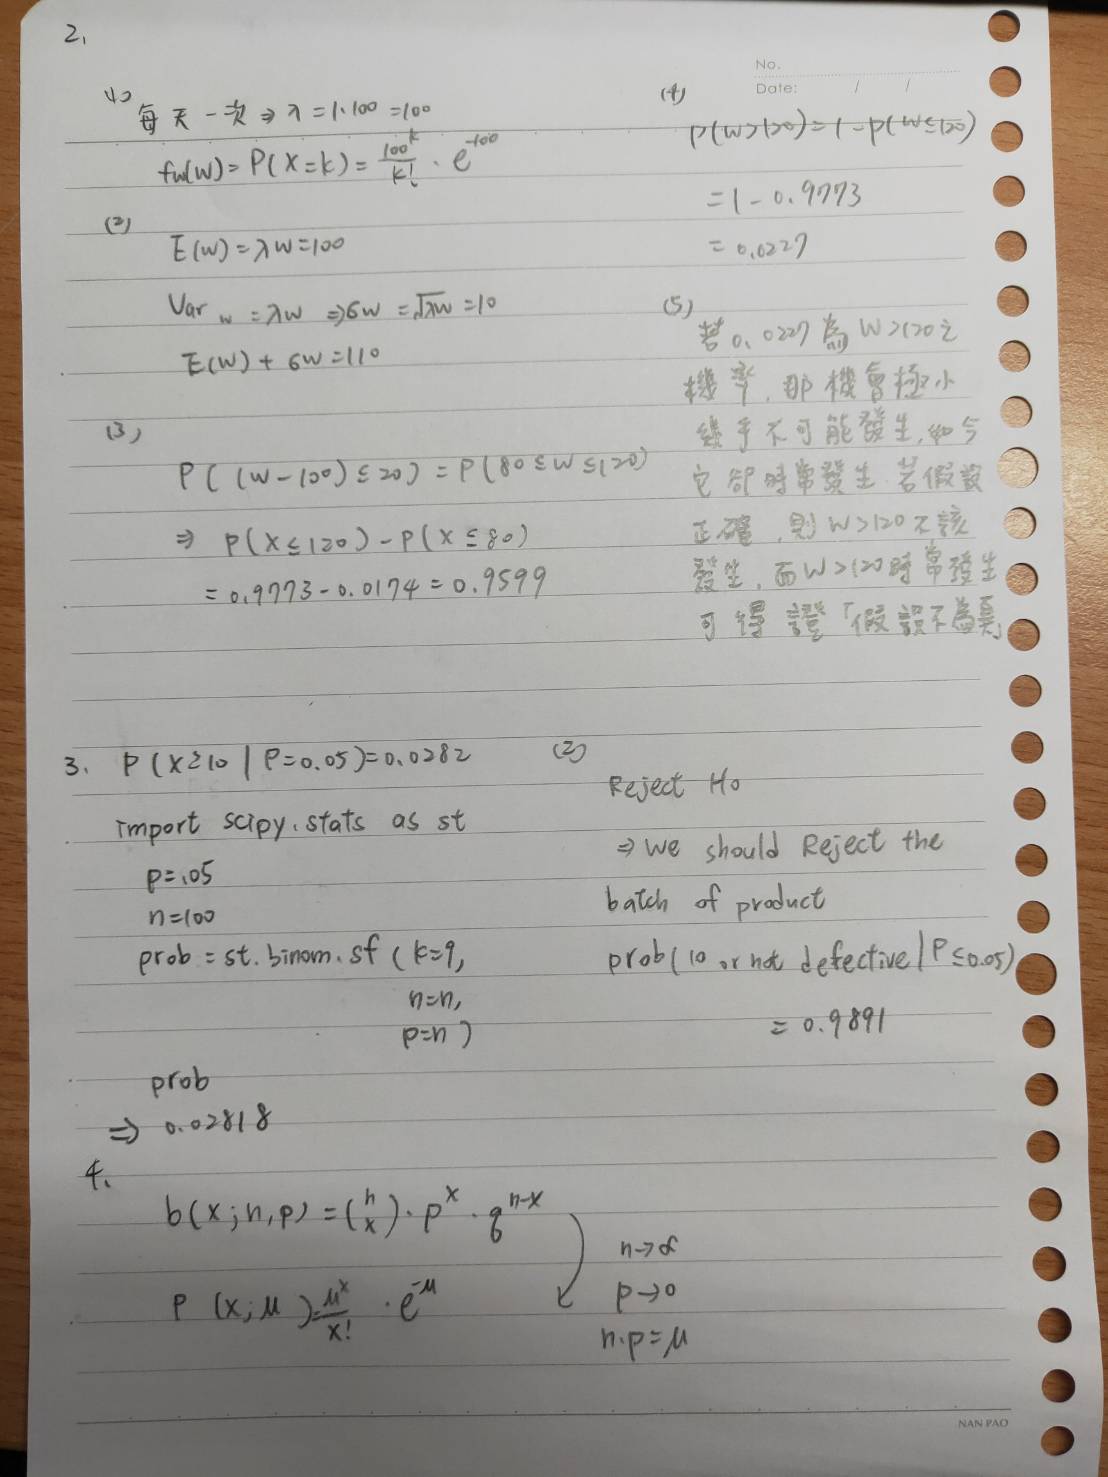 2.
No.
Date: / /
(1)
每天一次 ⇒ λ = 1·100 = 100
fw(w) = P(X=k) = 100^k/k! · e^-100
(2)
E(w) = λw = 100
Var w = λw ⇒ 6w = √λw = 10
E(w) + 6w = 110
(3)
P( (w-100) ≤ 20) = P(80 ≤ w ≤ 120)
⇒ P(X ≤ 120) - P(X ≤ 80)
= 0.9773 - 0.0174 = 0.9599
(4)
P(w>120) = 1 - P(w≤120)
= 1 - 0.9773
= 0.0227
(5)
若 0.0227 為 W>120之
機率,那機會極小
幾乎不可能發生,如今
它卻時常發生.若假設
正確,則W>120不該
發生,而W>120時常發生
可得證「假設不為真」
3. P(X≥10 | P=0.05) = 0.0282
import scipy.stats as st
p=.05
n=100
prob = st.binom.sf(k=9,
n=n,
p=n)
prob
⇒ 0.02818
(2)
Reject Ho
⇒ We should Reject the
batch of product
prob(10 or not defective | P≤0.05)
= 0.9891
4.
b(x;n,p) = (n x) · p^x · q^n-x
n→∞
p→0
n·p=μ
P (x;μ) = μ^x/x! · e^-μ
NAN PAO